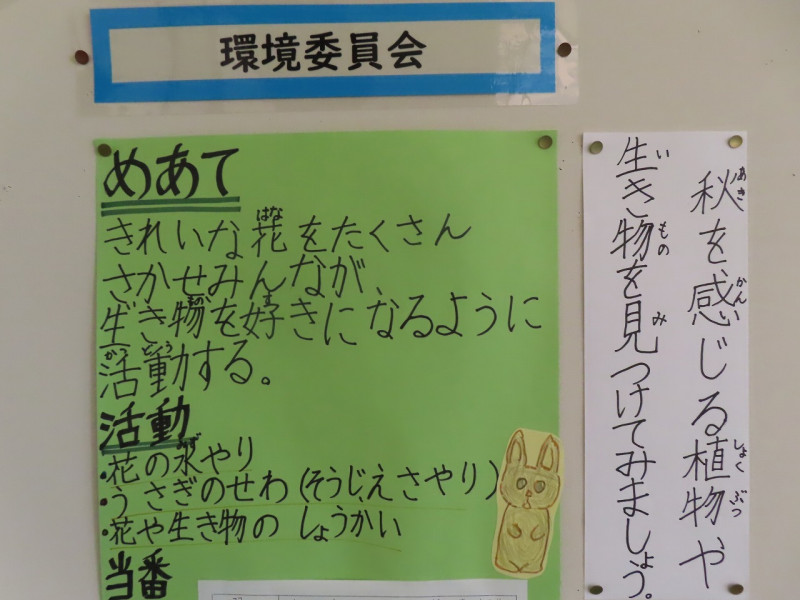 環境委員会
めあて
きれいな花をたくさん
さかせみんなが、
生き物を好きになるように
活動する。
活動
・花の水やり
・うさぎのせわ(そうじえさやり)
・花や生き物のしょうかい
当番
秋を感じる植物や
生き物を見つけてみましょう。